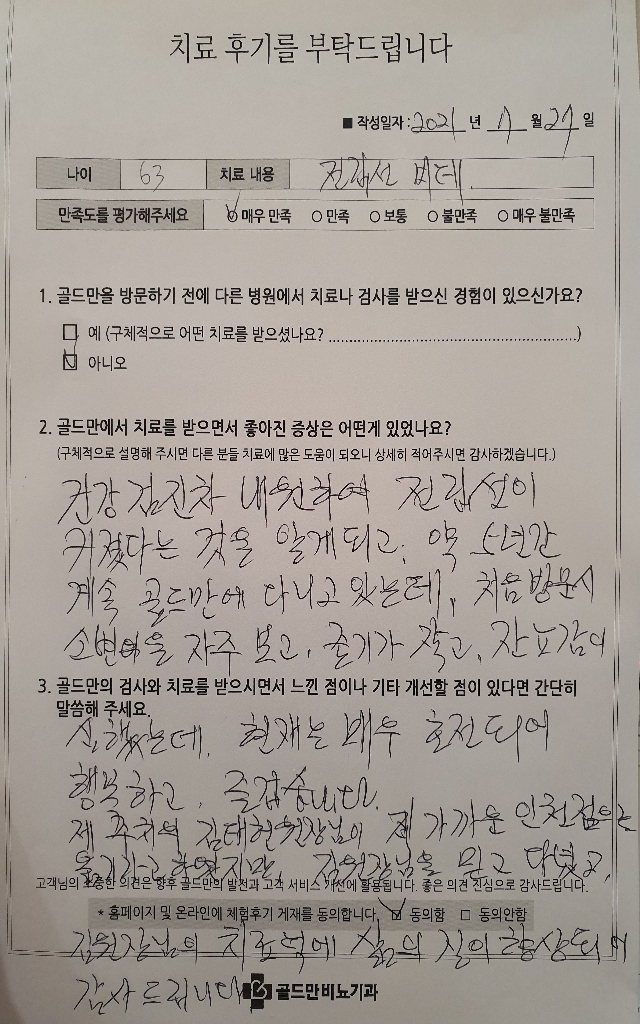 치료 후기를 부탁드립니다
■ 작성일자 : 2021 년 월 27 일
나이 63 치료 내용 전립선 비대
만족도를 평가해주세요 매우 만족 만족 보통 불만족 매우 불만족
1. 골드만을 방문하기 전에 다른 병원에서 치료나 검사를 받으신 경험이 있으신가요?
예 (구체적으로 어떤 치료를 받으셨나요? )
아니오
2. 골드만에서 치료를 받으면서 좋아진 증상은 어떤게 있었나요?
(구체적으로 설명해 주시면 다른 분들 치료에 많은 도움이 되오니 상세히 적어주시면 감사하겠습니다.)
건강검진차 내원하여 전립선이
커졌다는 것을 알게되고, 약 5년간
계속 골드만에 다니고 있는데, 처음 방문시
소변을 자주 보고, 줄기가 작고, 잔뇨감이
3. 골드만의 검사와 치료를 받으시면서 느낀 점이나 기타 개선할 점이 있다면 간단히
말씀해 주세요.
심했는데, 현재는 매우 호전되어
행복하고, 즐겁습니다.
제 주치의 김태헌원장님이 가까운 인천점으로
옮기라고 하였지만, 김원장님을 믿고 다녔고,
고객님의 소중한 의견은 향후 골드만의 발전과 고객 서비스 개선에 활용됩니다. 좋은 의견 진심으로 감사드립니다.
* 홈페이지 및 온라인에 체험후기 게재를 동의합니다. 동의함 동의안함
김원장님의 치료덕에 삶의 질이 향상되어
감사드립니다
골드만비뇨기과